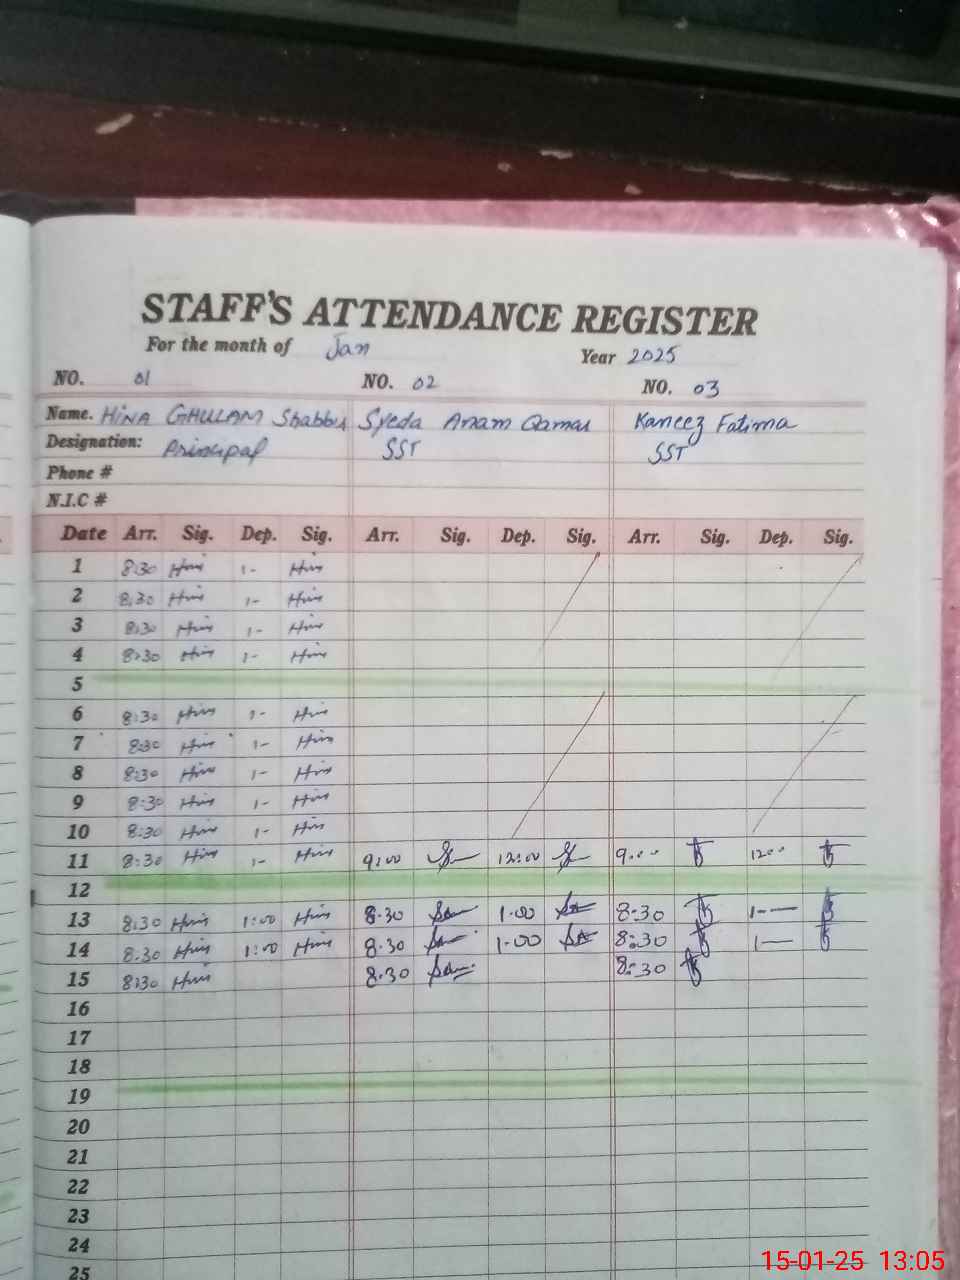 STAFF'S ATTENDANCE REGISTER
For the month of Jan Year 2025
NO. 01 NO. 02 NO. 03
Name. HINA GHULAM Shabbir Syeda Anam Qamar Kaneez Fatima
Designation: Principal SST SST
Phone #
N.I.C #
Date Arr. Sig. Dep. Sig. Arr. Sig. Dep. Sig. Arr. Sig. Dep. Sig.
1 8:30 Hina 1- Hina
2 8:30 Hina 1- Hina
3 8:30 Hina 1- Hina
4 8:30 Hina 1- Hina
5
6 8:30 Hina 1- Hina
7 8:30 Hina 1- Hina
8 8:30 Hina 1- Hina
9 8:30 Hina 1- Hina
10 8:30 Hina 1- Hina
11 8:30 Hina 1- Hina 9:00 12:00 9:00 1200
12
13 8:30 Hina 1:00 Hina 8:30 1:00 8:30 1-
14 8:30 Hina 1:00 Hina 8:30 1:00 8:30 1-
15 8:30 Hina 8:30 8:30
16
17
18
19
20
21
22
23
24
25
15-01-25 13:05